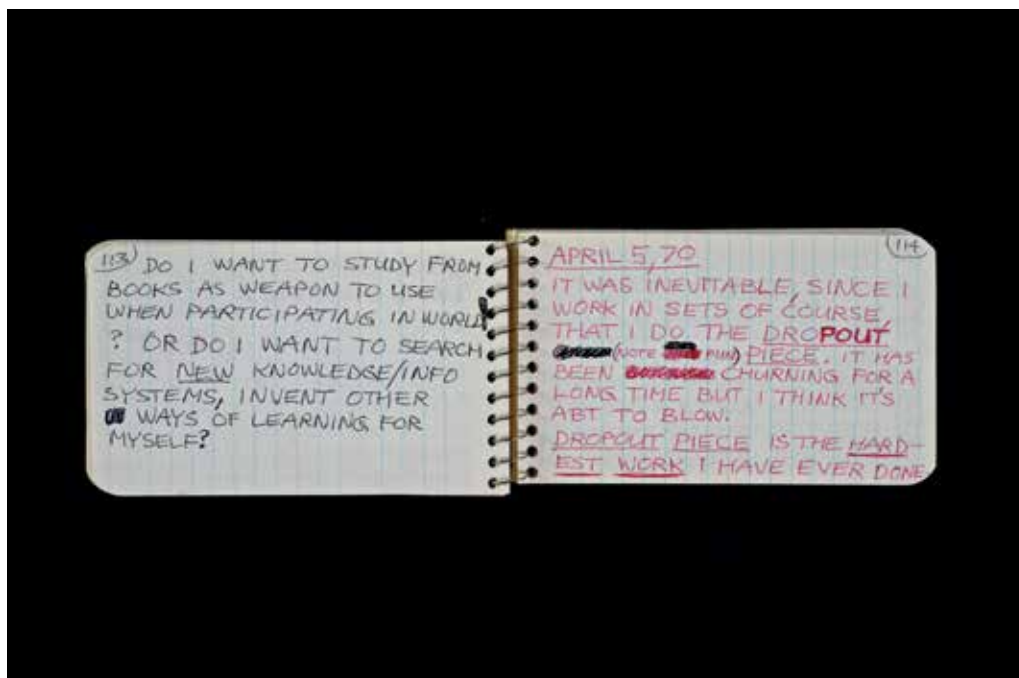 113
DO I WANT TO STUDY FROM
BOOKS AS WEAPON TO USE
WHEN PARTICIPATING IN WORLD
? OR DO I WANT TO SEARCH
FOR NEW KNOWLEDGE/INFO
SYSTEMS, INVENT OTHER
WAYS OF LEARNING FOR
MYSELF?
114
APRIL 5, 70
IT WAS INEVITABLE, SINCE I
WORK IN SETS OF COURSE,
THAT I DO THE DROPOUT
(NOTE PUN) PIECE. IT HAS
BEEN CHURNING FOR A
LONG TIME BUT I THINK IT'S
ABT TO BLOW.
DROPOUT PIECE IS THE HARD-
EST WORK I HAVE EVER DONE